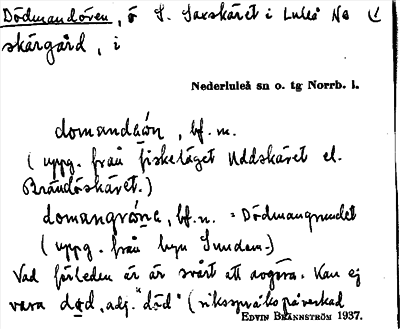 Dödmandören, ö S. Saxskäret i Luleå
skärgård, i
Nederluleå sn o. tg Norrb. l.
domandaón, bf. m.
(uppg. från fiskeläget Uddskäret el.
Brändöskäret.)
domangrónę, bf. n. = Dödmangrundet
(uppg. från byn Sundom.)
Vad förleden är är svårt att avgöra. Kan ej
vara död, adj. "död" (riksspråkspåverkad
EDVIN BRÄNNSTRÖM 1937.